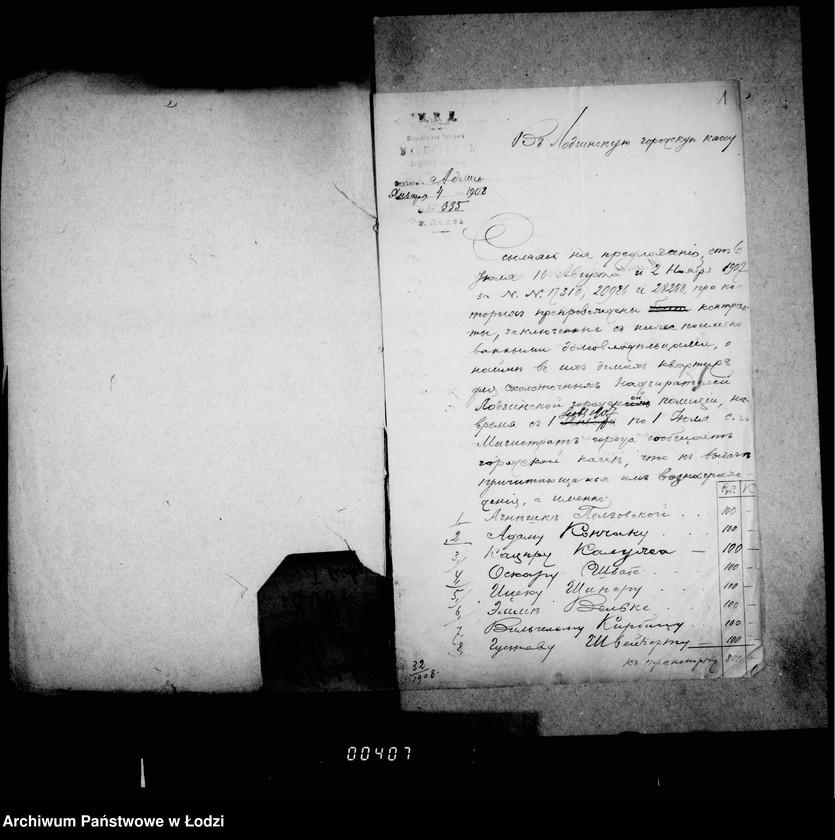 1
М. В. Д.
Въ Лодзинскую городскую кассу
Января 4 1908
№ 335
г. Лодзь
Ссылаясь на предложенія, отъ 6
Іюля, 10 Августа и 2 Ноября 1907
за №№ 17310, 20926 и 28288, при ко-
торыхъ препровождены контрак-
ты, заключенные съ нижепоимено-
ванными домовладѣльцами, о
наймѣ въ ихъ домахъ квартиръ
для околоточныхъ надзирателей
Лодзинской городской полиціи, на
время съ 1 по 1 Іюля с. г.
Магистратъ города сообщаетъ
городской кассѣ, что къ выдачѣ
причитающагося имъ вознаграж-
денія, а именно:
Руб. К
1, Агнѣшкѣ . . . 100 —
2, Адаму Кончаку . . 100 —
3, Кацпру — 100 —
4, Оскару Швабе . . 100 —
5, Ицеку Шиперу . . 100 —
6, Эмилю . . 100 —
7, Вильгельму . 100 —
8, Густаву Швейкерту — 100 —
къ транспорту 800 —
32
1908
00407
Archiwum Państwowe w Łodzi